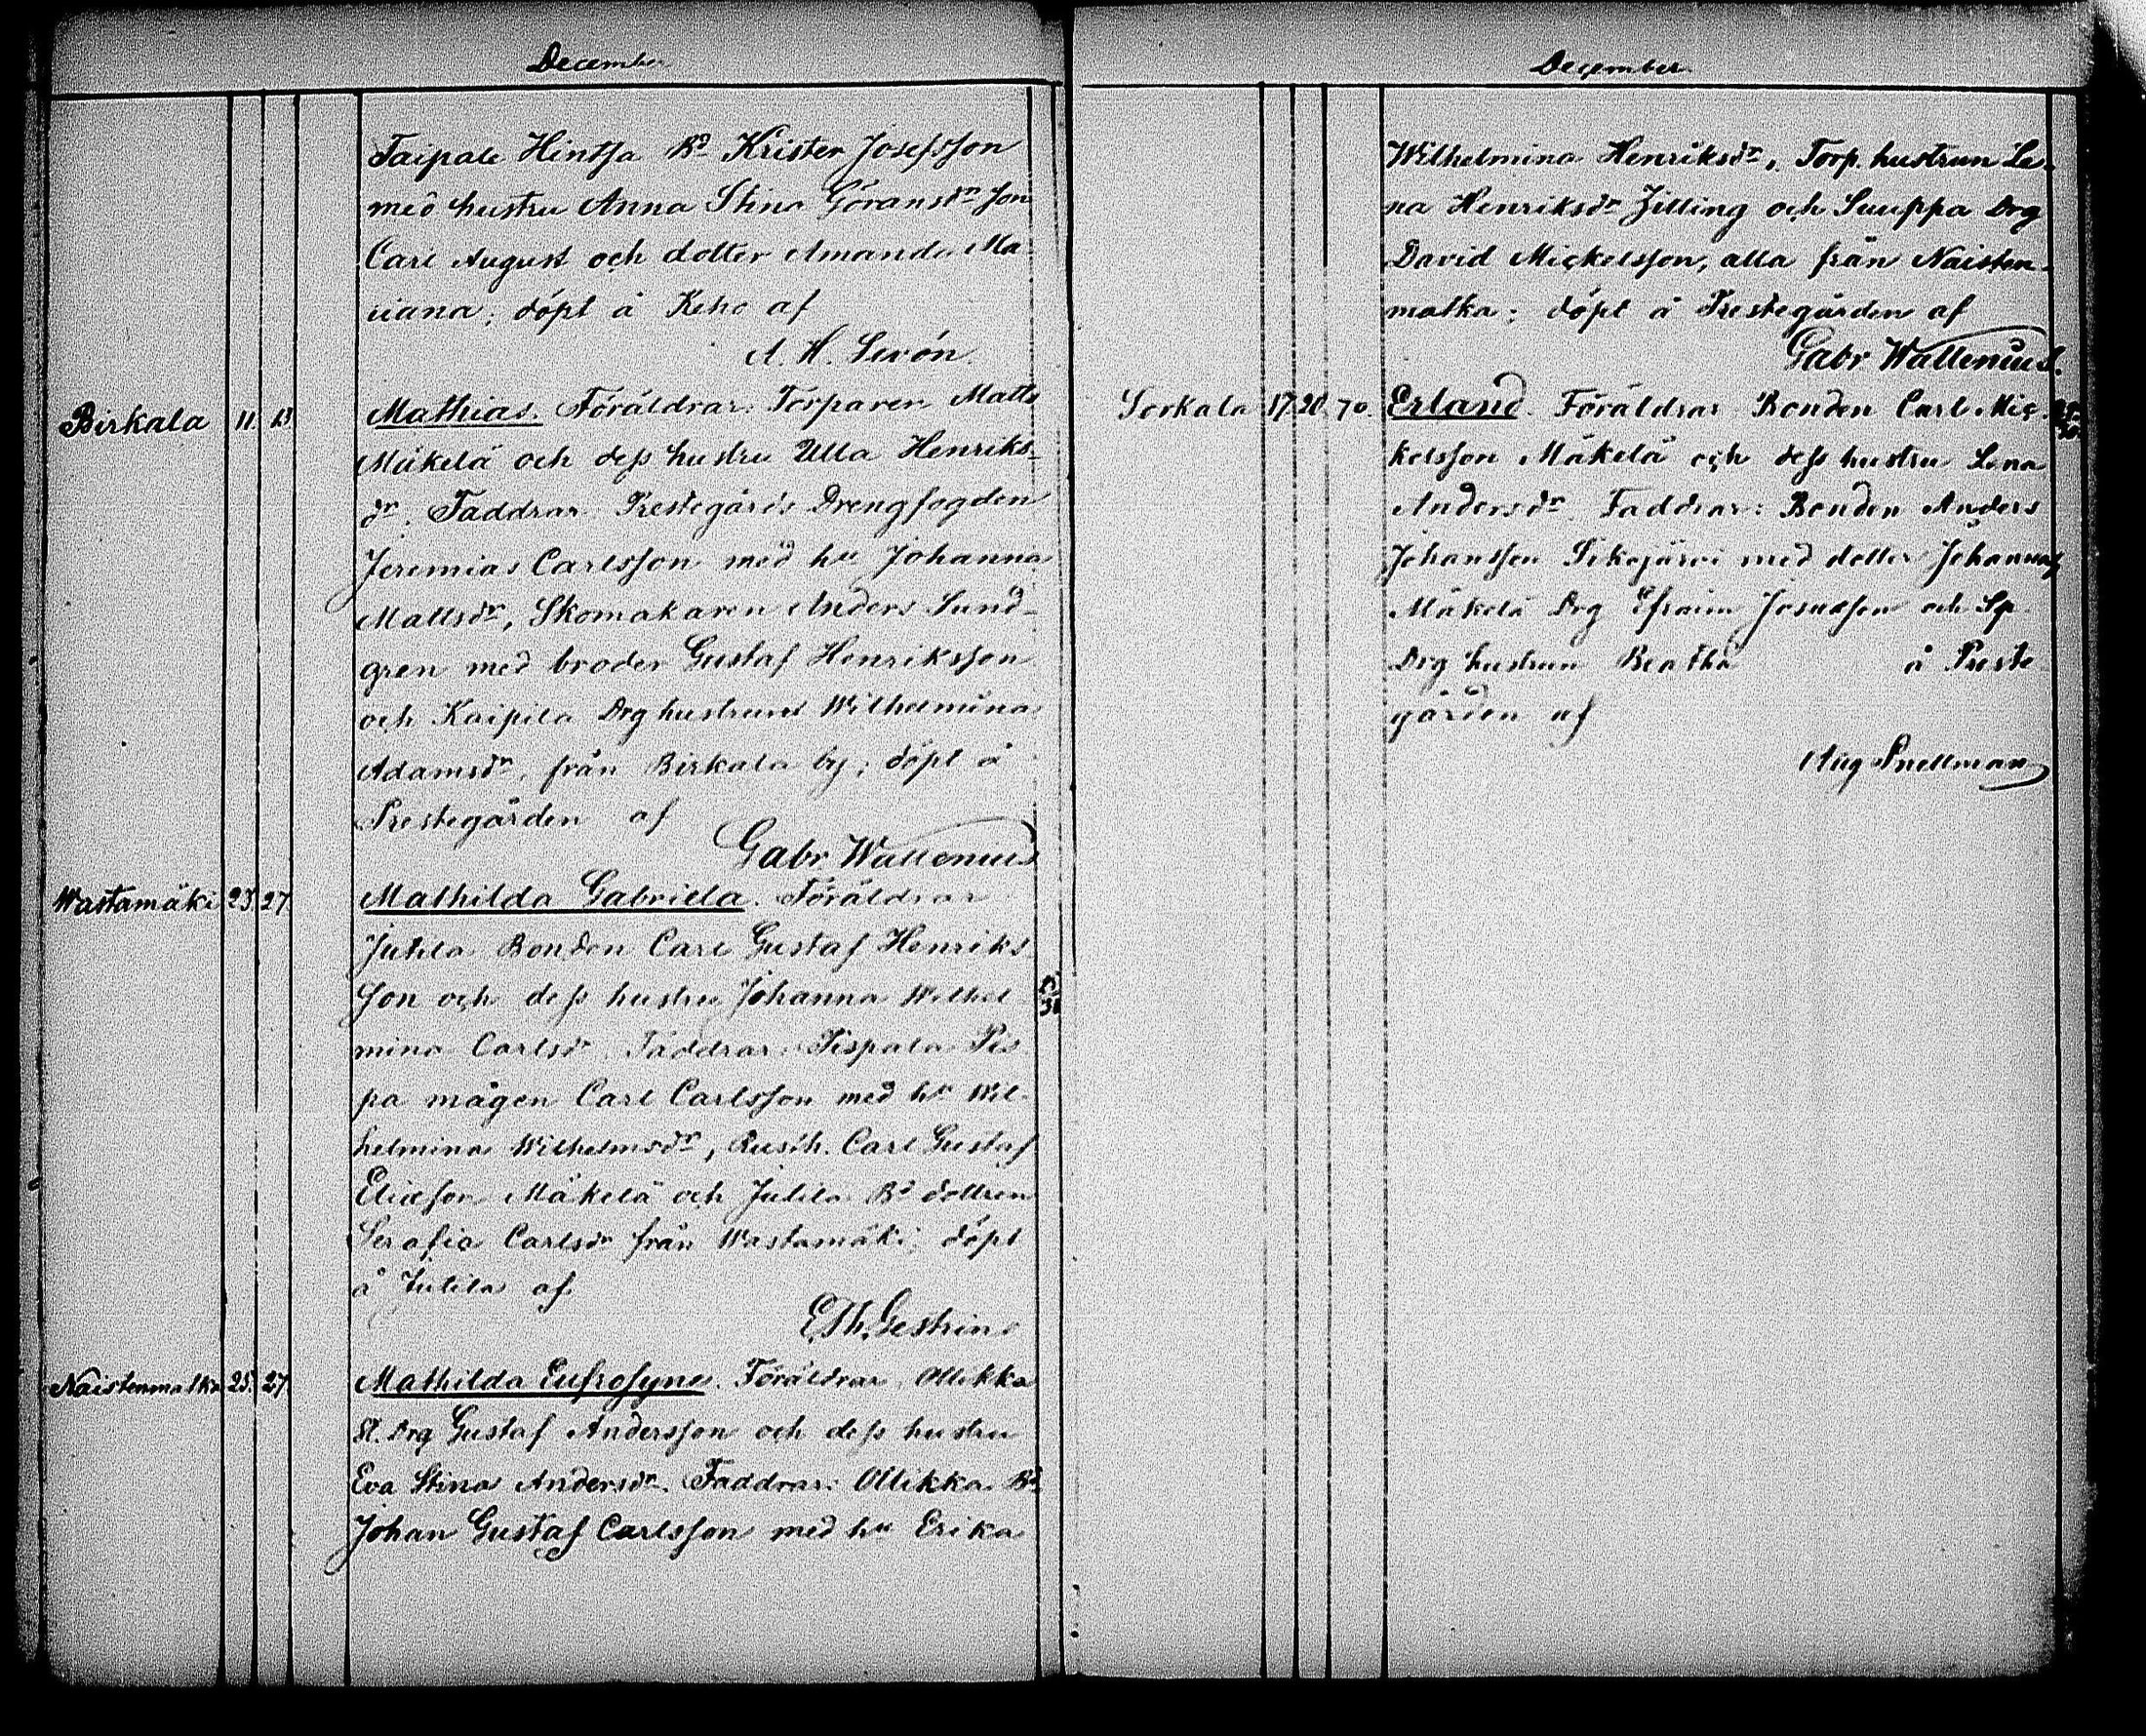 December
Taipale Hintsa Bd Krister Josefsson
med hustru Anna Stina Göransdr son
Carl August och dotter Amanda Ma-
riana; döpt å Keho af
A. H.
Birkala 11. 13 Mathias. Föräldrar: Torparen Matts
Mäkelä och dess hustru Ulla Henriks-
dr. Faddrar: Prestegårds Drengfogden
Jeremias Carlsson med hu Johanna
Mattsdr, Skomakaren Anders Sund-
gren med broder Gustaf Henriksson
och Kaipila Drghustrun Wilhelmina
Adamsdr, från Birkala by; döpt å
Prestegården af
Gabr Wallenius
Wastamäki 23. 27. Mathilda Gabriela. Föräldrar
Jutila Bonden Carl Gustaf Henriks
son och dess hustru Johanna Wilhel
mina Carlsdr. Faddrar: Pispala Pis
pa mågen Carl Carlsson med hu Wil-
helmina Wilhelmsdr, Rusth. Carl Gustaf
Eliasson Mäkelä och Jutila Bd dottren
Serafia Carlsdr från Wastamäki; döpt
å Jutila af
E.Th. Gestrin
Naistenmatka 25. 27. Mathilda Eufrosyne. Föräldrar Ollikka
St. Drg Gustaf Andersson och dess hustru
Eva Stina Andersdr. Faddrar: Ollikka Bd
Johan Gustaf Carlsson med hu Erika
December
Wilhelmina Henriksdr, Torp. hustrun Le-
na Henriksdr Zilling och Suuppa Drg
David Mickelsson, alla från Naisten-
matka; döpt å Prestegården af
Gabr Wallenius.
Sorkala 17. 20. 70. Erland. Föräldrar Bonden Carl Mic-
kelsson Mäkelä och dess hustru Lena
Andersdr. Faddrar: Bonden Anders
Johansson Sikojärvi med dotter Johanna,
Mäkelä Drg Efraim Josuason och Sp
Drg hustrun Beatha å Preste
gården af
Aug Snellman